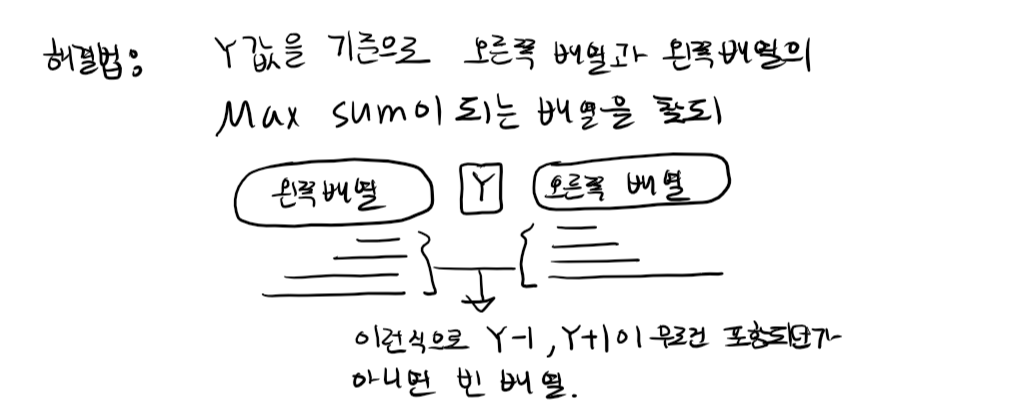 해결법:
Y값을 기준으로 오른쪽 배열과 왼쪽배열의
Max sum이 되는 배열을
왼쪽배열 Y 오른쪽 배열
이런식으로 Y-1, Y+1이 무조건 포함되던가
아니면 빈 배열.